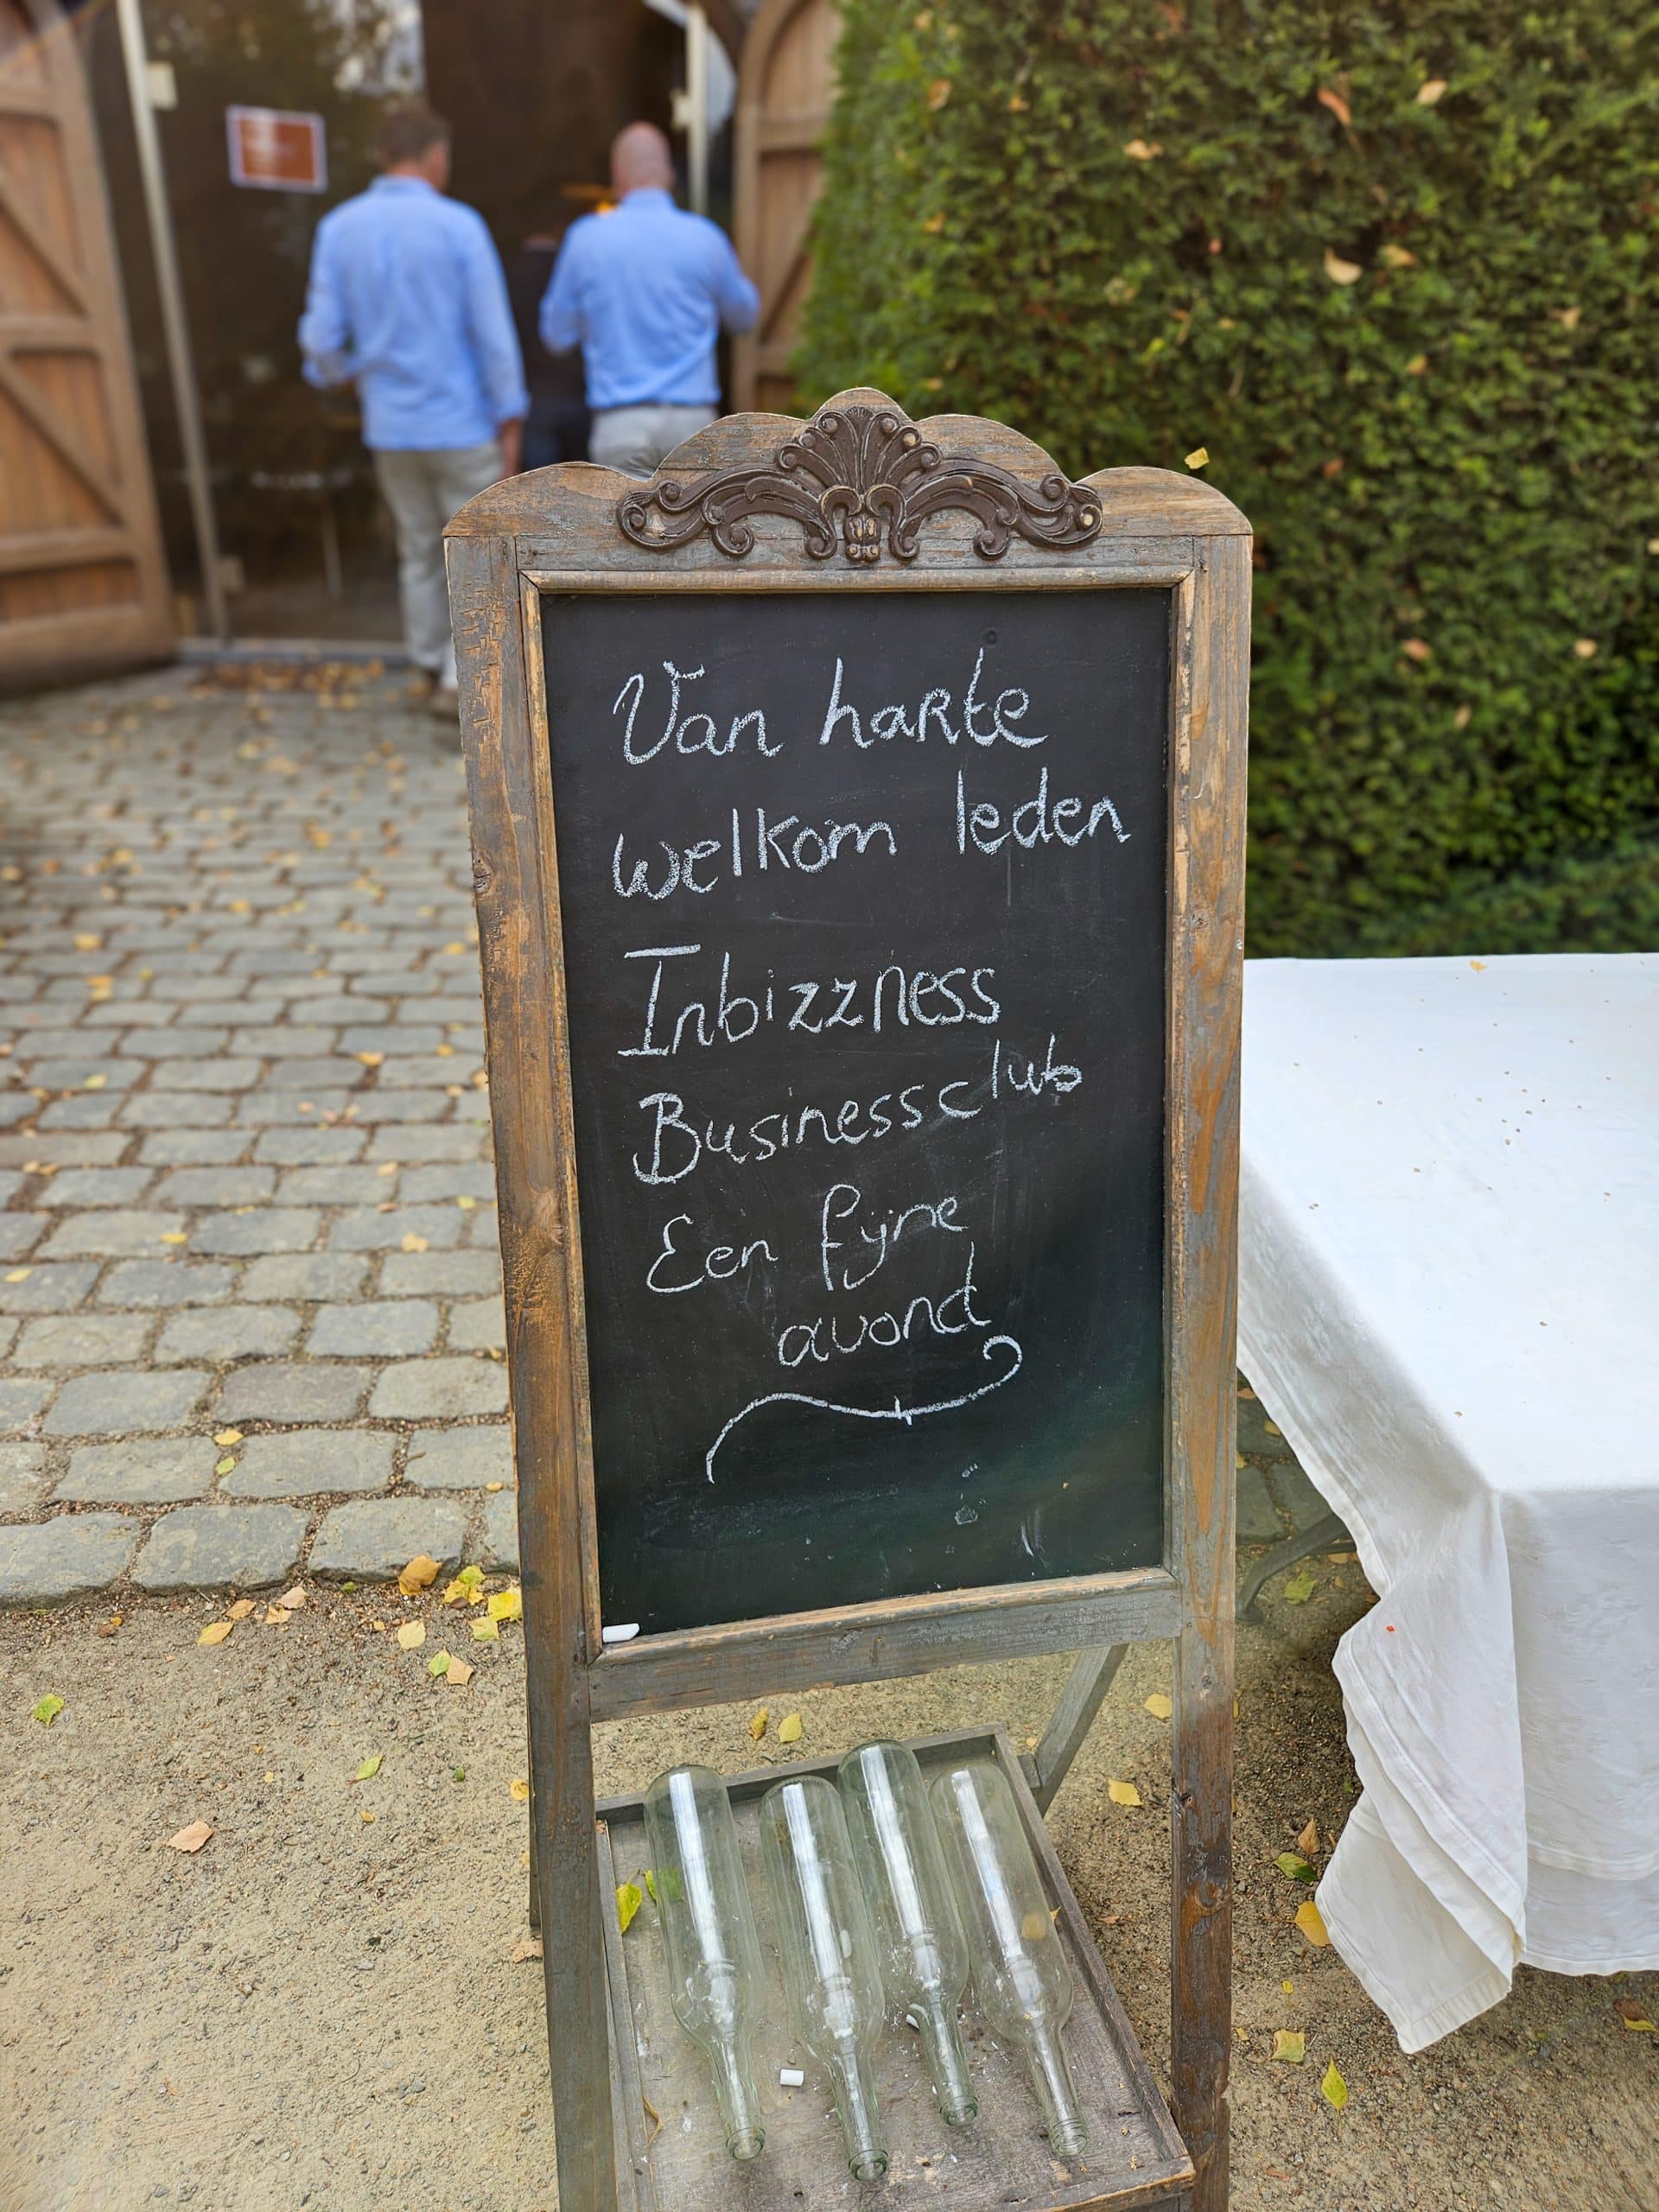 Van harte
welkom leden
Inbizzness
Businessclub
Een fijne
avond